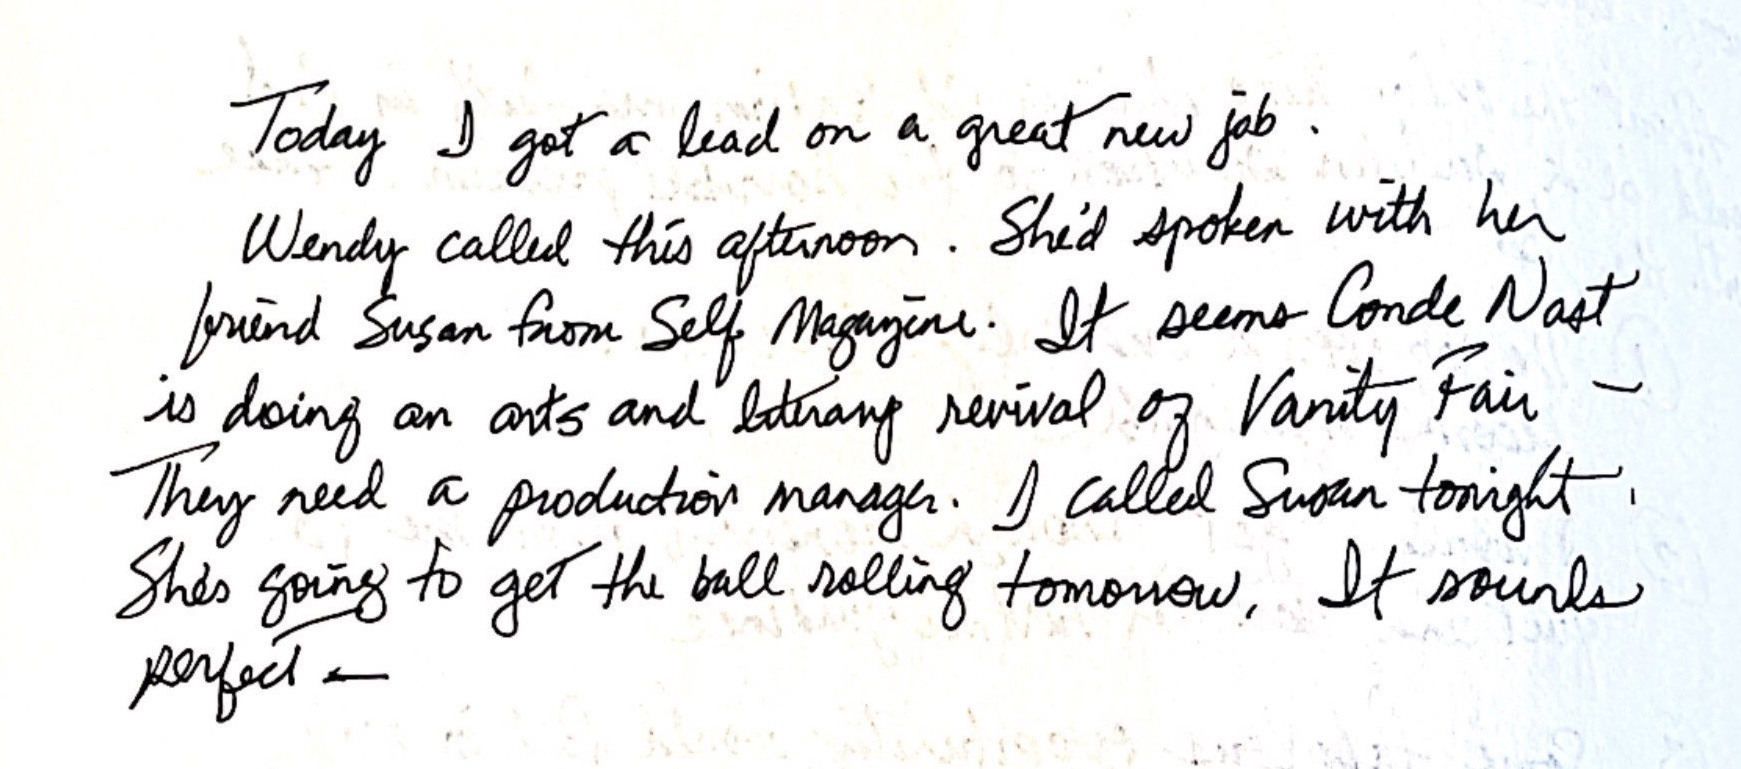 Today I got a lead on a great new job.
Wendy called this afternoon. She'd spoken with her
friend Susan from Self Magazine. It seems Conde Nast
is doing an arts and literary revival of Vanity Fair —
They need a production manager. I called Susan tonight.
She's going to get the ball rolling tomorrow. It sounds
perfect —